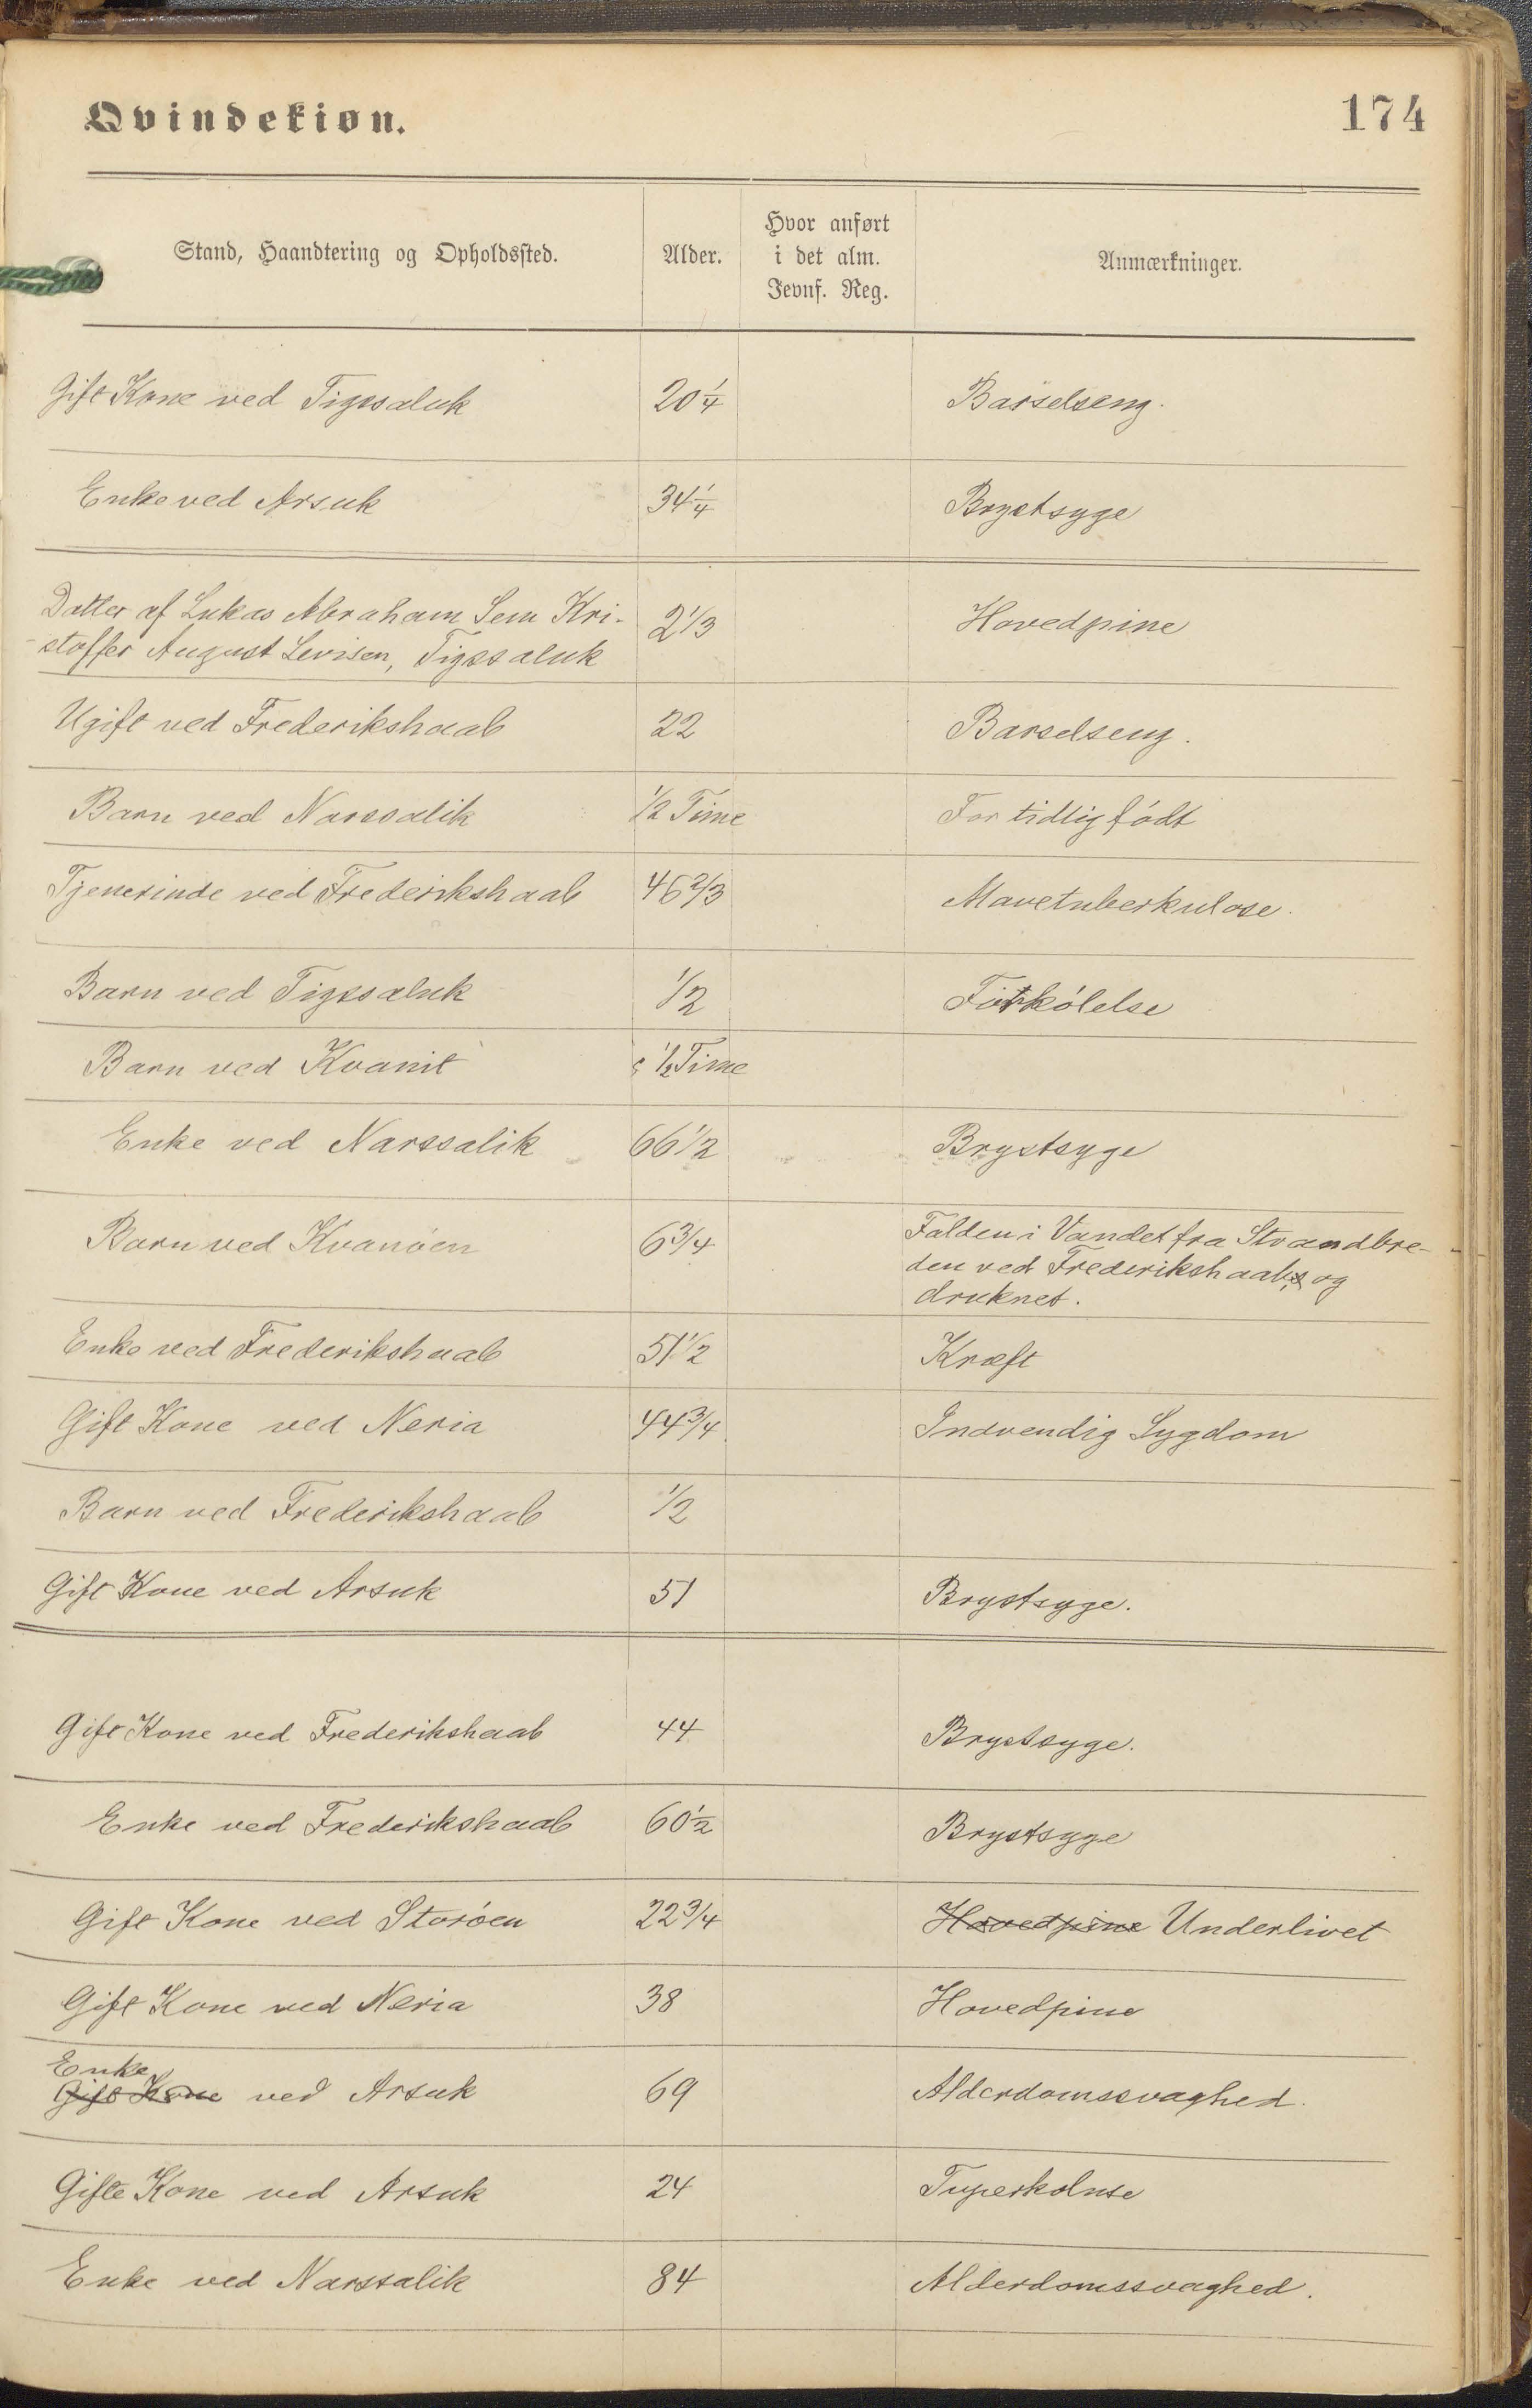 Qvindekiøn.
174
Stand, Haandtering og Opholdssted. Alder. Hvor anført i det alm. Jevnf. Reg. Anmærkninger.
Gift Kone ved Tigssaluk 20 1/4 Barselseng.
Enke ved Arsuk 34 1/4 Brystsyge
Datter af Lukas Abraham Sem Kri- 2 1/3 Hovedpine
-stoffer August Levisen, Tigssaluk
Ugift ved Frederikshaab 22 Barselseng.
Barn ved Narssalik 1/2 Time For tidlig født
Tjenerinde ved Frederikshaab 46 2/3 Mavetuberkulose.
Barn ved Tigssaluk 1/2 Forkólelse
Barn ved Kvanit 1/2 Time
Enke ved Narssalik 66 1/2 Brystsyge
Barn ved Kvanøen 6 3/4 Falden i Vandet fra Strandbre-
den ved Frederikshaab, og
druknet.
Enke ved Frederikshaab 51 1/2 Kræft
Gift Kone ved Neria 44 3/4 Indvendig Sygdom
Barn ved Frederikshaab 1/2
Gift Kone ved Arsuk 51 Brystsyge.
Gift Kone ved Frederikshaab 44 Brystsyge.
Enke ved Frederikshaab 60 1/2 Brystsyge
Gift Kone ved Storøen 22 3/4 Hovedpine Underlivet
Gift Kone ved Neria 38 Hovedpine
Enke
Gift Kone ved Arsuk 69 Alderdomssvaghed.
Gifte Kone ved Arsuk 24 Tuperkoluse
Enke ved Narssalik 84 Alderdomssvaghed.